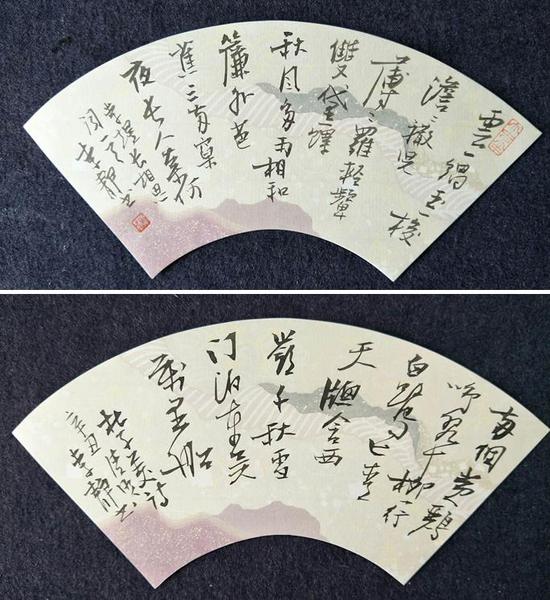 雲一緺玉一梭
澹澹衫兒
薄薄羅輕顰
雙黛螺
秋风多雨相和
簾外芭
蕉三兩窠
夜長人奈何
李煜長相思
李靜书
兩個黃鸝
鳴翠柳一行
白鷺上青
天牕含西
嶺千秋雪
门泊東吴
萬里船
杜子美詩
辛丑李靜书